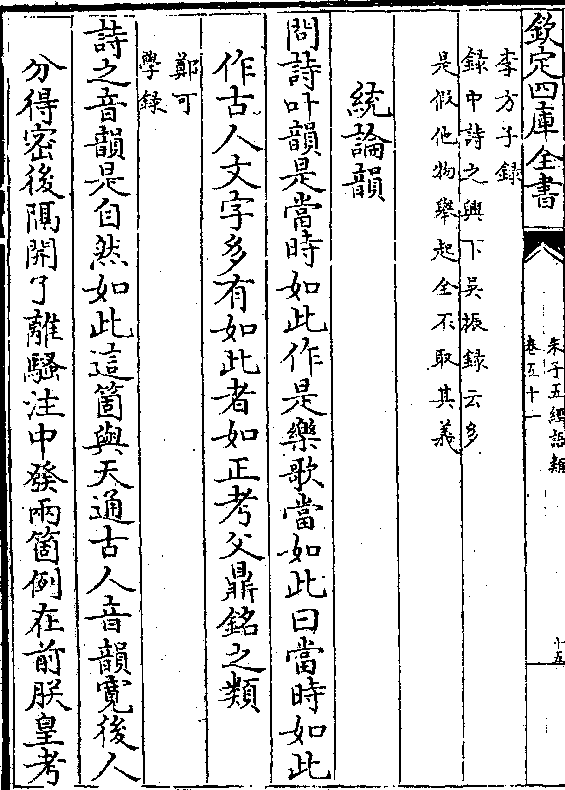 欽定四庫全書
朱子五經語類
卷五十一
十五
李方子録
録中詩之興下吳振録云多
是假他物舉起全不取其義
統論韻
問詩叶韻是當時如此作是樂歌當如此曰當時如此
作古人文字多有如此者如正考父鼎銘之類
鄭可
學録
詩之音韻是自然如此這箇與天通古人音韻寛後人
分得密後隔開了離騷注中發兩箇例在前朕皇考